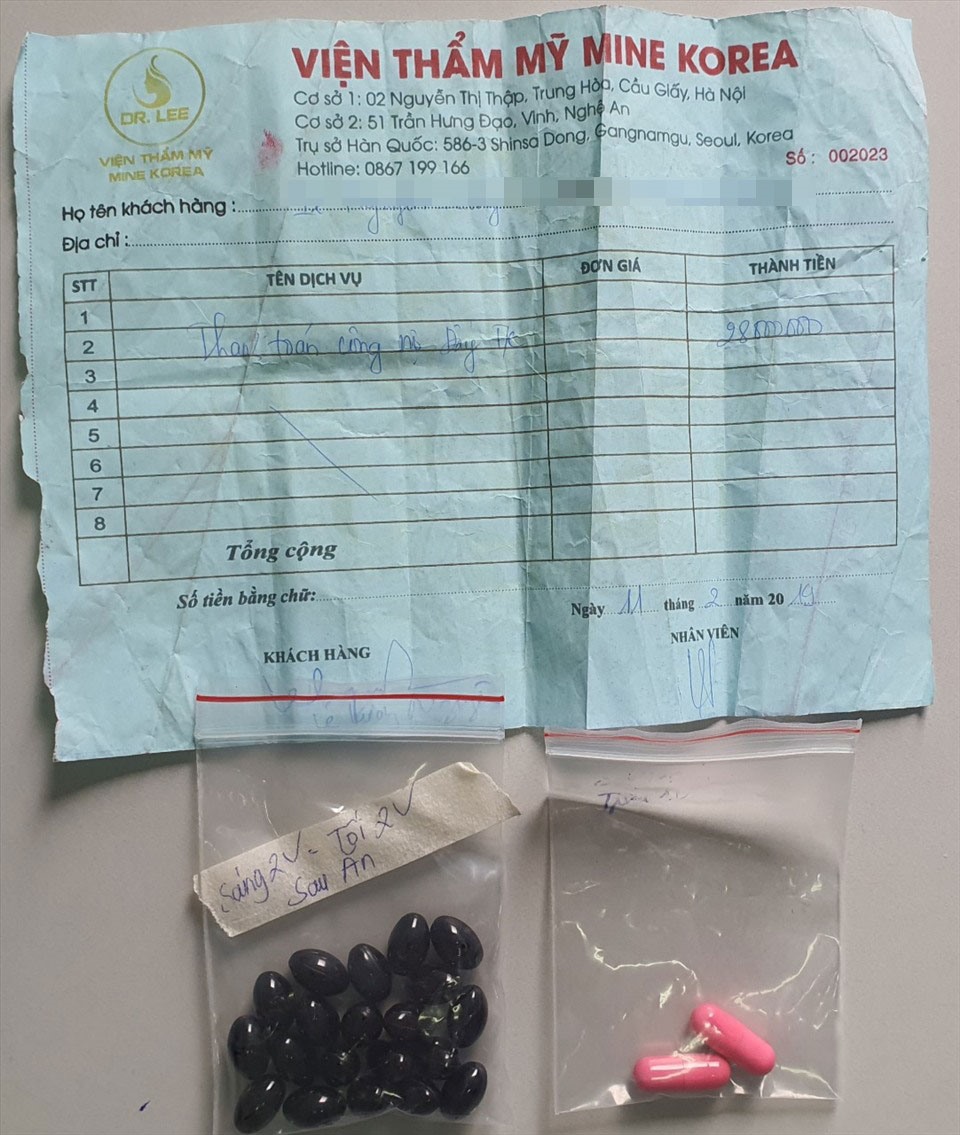 DR. LEE
VIỆN THẨM MỸ
MINE KOREA
VIỆN THẨM MỸ MINE KOREA
Cơ sở 1: 02 Nguyễn Thị Thập, Trung Hòa, Cầu Giấy, Hà Nội
Cơ sở 2: 51 Trần Hưng Đạo, Vinh, Nghệ An
Trụ sở Hàn Quốc: 586-3 Shinsa Dong, Gangnamgu, Seoul, Korea
Hotline: 0867 199 166
Số : 002023
Họ tên khách hàng :
Địa chỉ :
STT TÊN DỊCH VỤ ĐƠN GIÁ THÀNH TIỀN
1
2 Thanh toán công nợ 28000000
3
4
5
6
7
8
Tổng cộng
Số tiền bằng chữ:
Ngày 11 tháng 2 năm 2019
KHÁCH HÀNG NHÂN VIÊN
Sáng 2V - Tối 2V
Sau Ăn